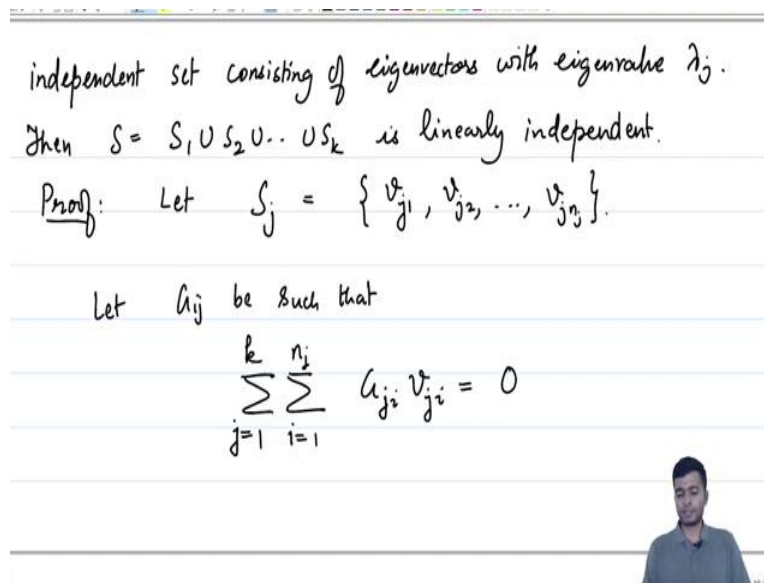 independent set consisting of eigenvectors with eigenvalue λj.
Then S = S1 ∪ S2 ∪ .. ∪ Sk is linearly independent.
Proof: Let Sj = { vj1, vj2, ..., vjnj }.
Let aij be such that
k nj
∑ ∑ aji vji = 0
j=1 i=1